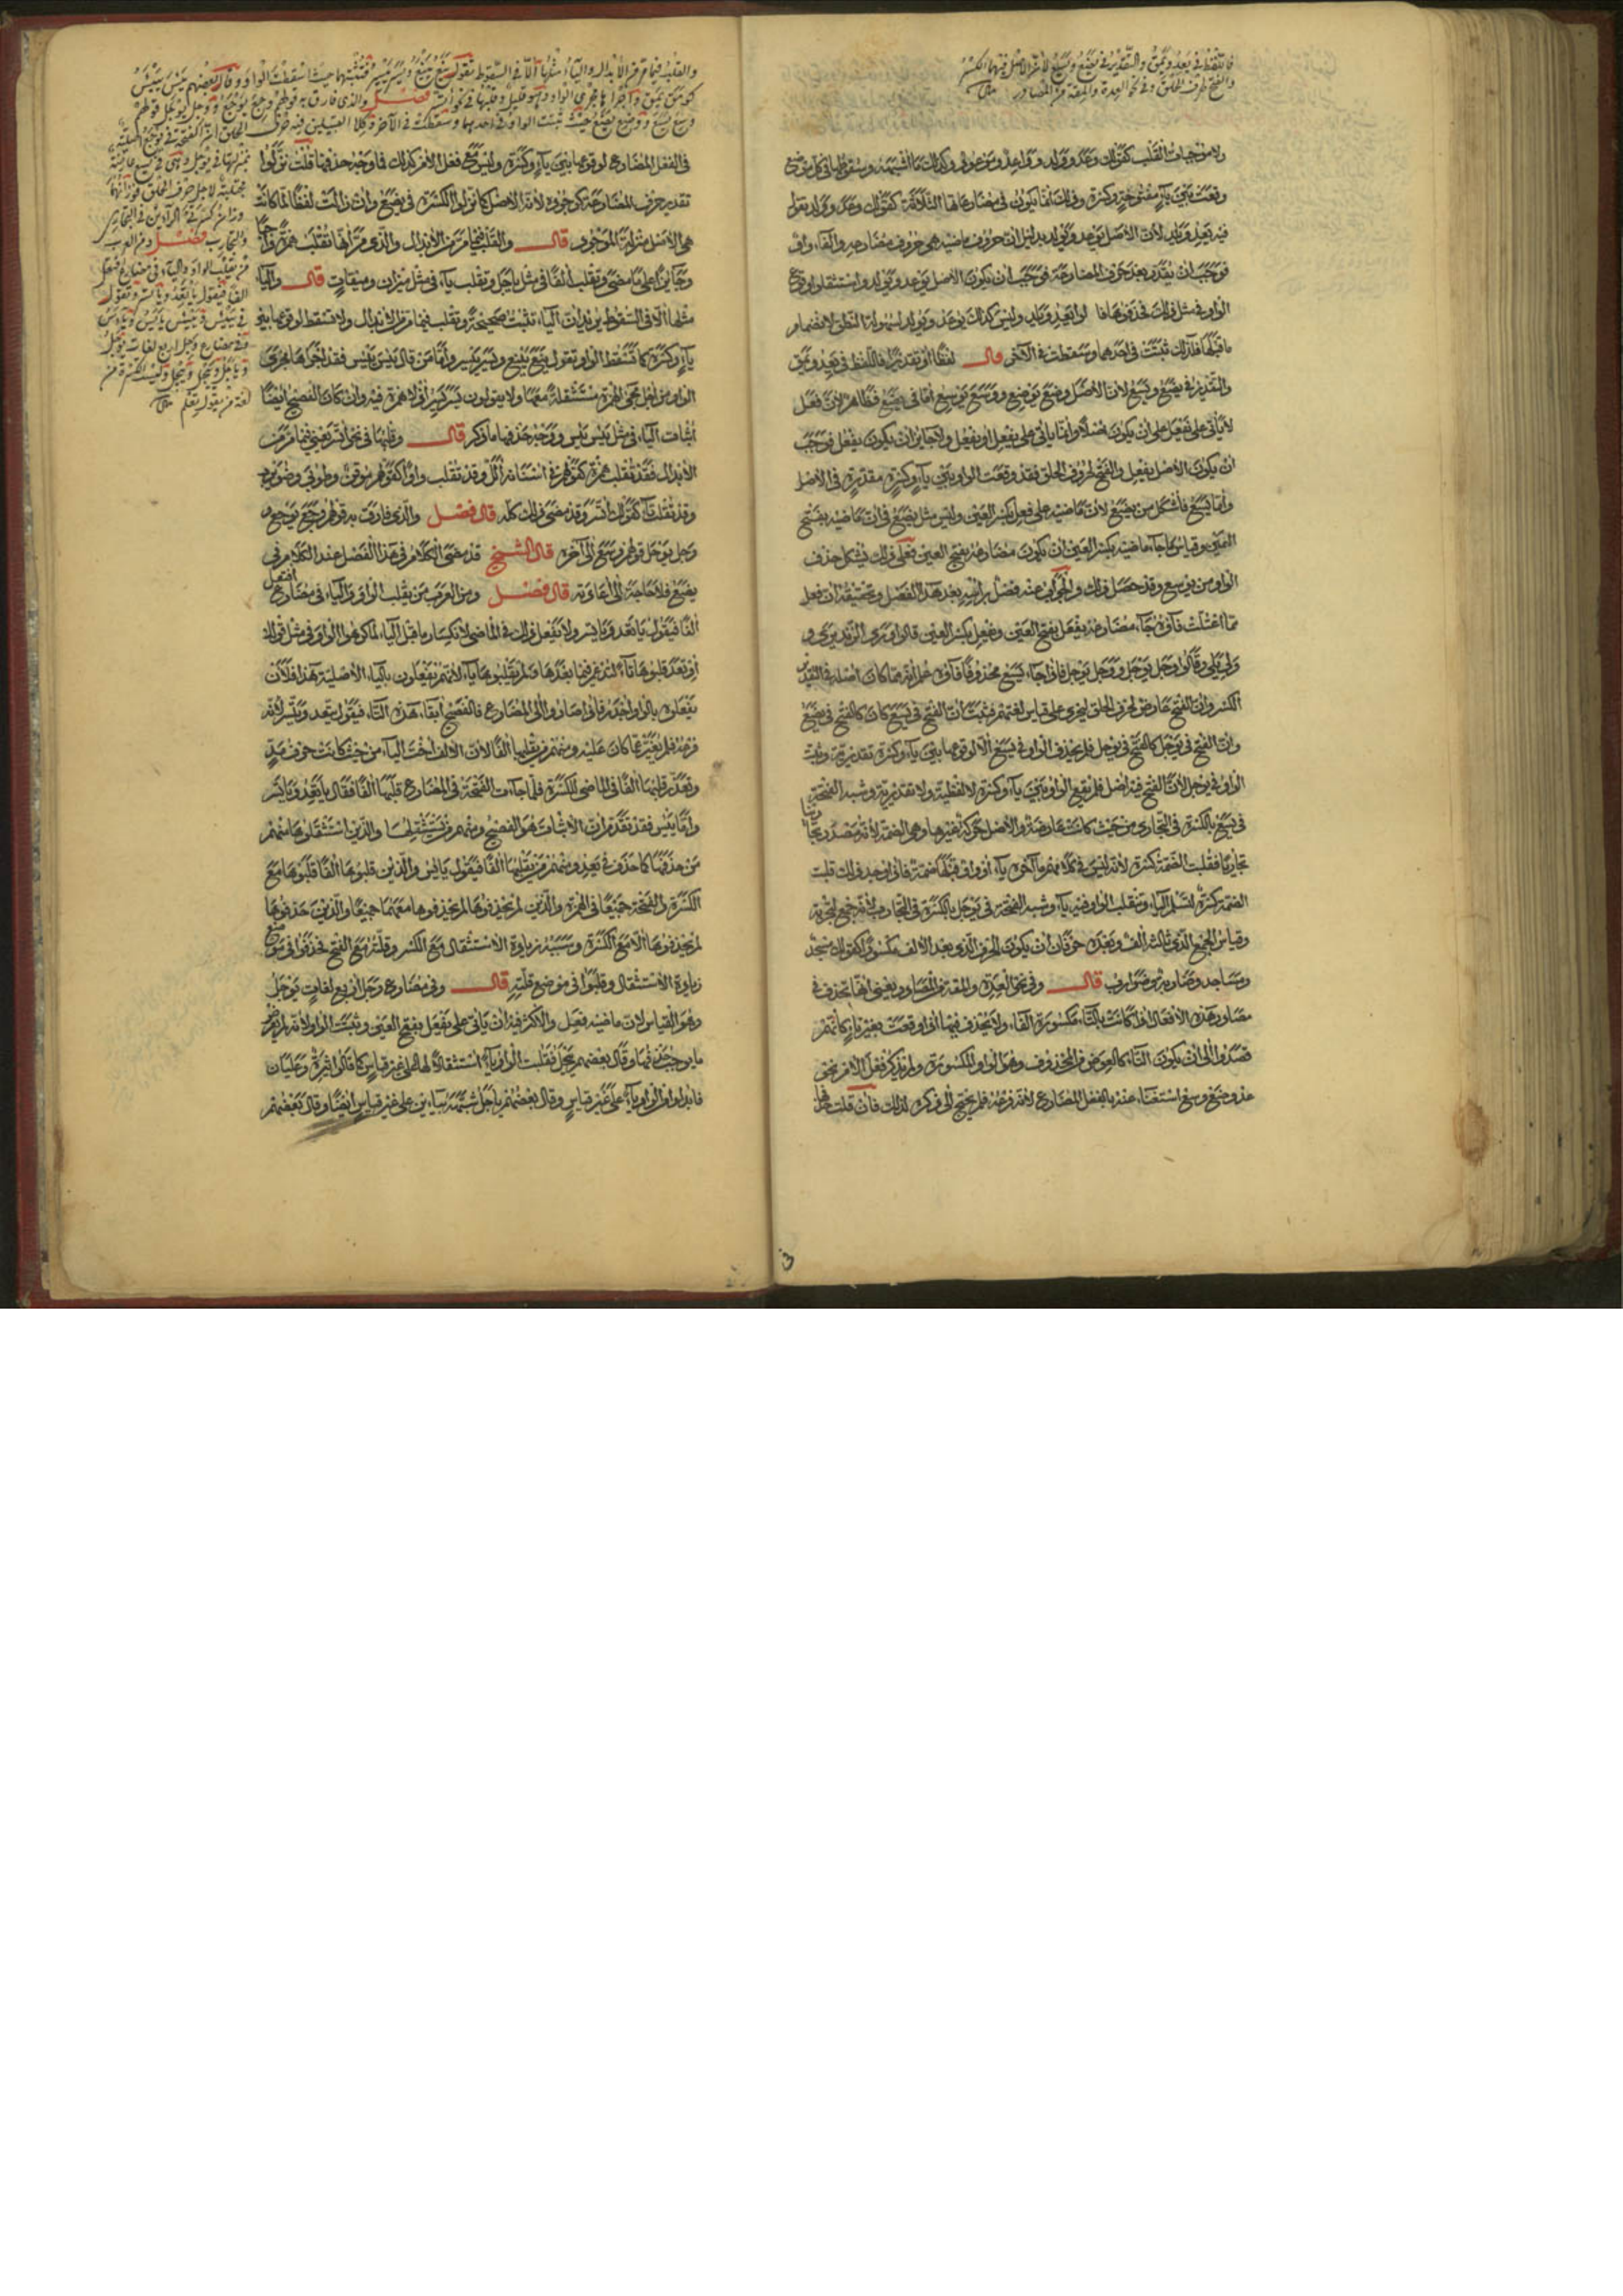 فاللفظ في يعد ويمق والتقدير في يضع ويسع لأن الأصل فيهما الكسر
والفتح لحرف الحلق وفي نحو العدة والمقة من المصادر
ولا موجبات القلب كقولك وعد وولد وواعد وموعود وكذلك ما أشبهه وسقوطها في كل موضع
وقعت بين ياء مفتوحة وكسرة وذلك انما يكون في مضارعاتها الثلاثة كقولك وعد وولد تقول
فيه يعد ويلد لأن الأصل يوعد ويولد بدليل ان حروف ماضيه هي حروف مضارعه والفاء واو
فوجب ان يقدر بعد حرف المضارعة فوجب ان يكون الأصل يوعد ويولد واستثقلوا وقوع
الواو في مثل ذلك فحذفوها فقالوا يعد ويلد وليس كذلك يوعد ويولد لسهولة النطق لانضمام
ما قبلها فلذلك ثبتت في احدهما وسقطت في الآخر قال لفظا او تقديرا فاللفظ في يعد ويمق
والتقدير في يضع ويسع لأن الأصل وضع يوضع ووسع يوسع اما في يضع فظاهر لأن فعل
لا يأتي على يفعل على ان يكون اصلا وانما يأتي على يفعل او يفعل ولا جايز ان يكون يفعل فوجب
ان يكون الأصل يفعل والفتح لحروف الحلق فقد وقعت الواو بين ياء وكسرة مقدرة في الأصل
وأما يسع فأشكل من يضع لأن ماضيه على فعل بكسر العين وليس مثل يضع في ان ماضيه بفتح
العين وقياس ما جاء ماضيه بكسر العين ان يكون مضارعه بفتح العين فعلى ذلك يشكل حذف
الواو من يوسع وقد حصل ذلك والجواب عنه فصل برأسه بعد هذا الفصل وتحقيقه ان فعل
مما اعتلت فاؤه جاء مضارعه يفعل بفتح العين ويفعل بكسر العين قالوا وري الزند يري و
ولي يلي وقالوا وجل يوجل ووحل يوحل فاذا جاء يسع محذوفا فاؤه علم انه مما كان اصله في التقدير
الكسر وان الفتح عارض لحرف الحلق ليجري على قياس لغتهم فثبت ان الفتح في يسع كان كالفتح في يضع
وان الفتح في يوجل كالفتح في يوحل فلم يحذف الواو في يسع الا لوقوعها بين ياء وكسرة تقديرية وثبت
الواو في يوجل لأن الفتح فيه اصل فلم يقع الواو بين ياء وكسرة لا لفظية ولا تقديرية وشبه الفتحة
في يسع بالكسرة في التجاري من حيث كانت عارضة والأصل حركة غيرها وهي الضمة لأنه مصدر تجارينا
تجاريا فقلبت الضمة كسرة لأنه ليس في كلامهم ما آخره ياء او واو قبلها ضمة فاذا وجد ذلك قلبت
الضمة كسرة لتسلم الياء وتنقلب الواو فيه ياء وشبه الفتحة في يوجل بالكسرة في التجارب لأنه جمع تجربة
وقياس الجمع الذي ثالثه الف وبعده حرفان ان يكون الحرف الذي بعد الألف مكسورا كقولك مسجد
ومساجد وضاربة وضوارب قال وفي نحو العدة والمقة من المصادر يعني انها تحذف في
مصادر هذه الأفعال اذا كانت بالتاء مكسورة الفاء ولا يحذف فيها اذا وقعت بغير تاء كأنهم
قصدوا الى ان يكون التاء كالعوض من المحذوف وهو الواو المكسورة ولم يذكر فعل الأمر نحو
عد وضع وسع استغناء عنه بالفعل المضارع لأنه فرعه فلم يحتج الى ذكره لذلك فان قلت
والقلب فيما مر من الابدال والياء مثلها الا في السقوط تقول ينع يينع ويسر ييسر فتثبتها حيث اسقطت الواو وقال بعضهم يئس يئس
كومق يمق فأجراها مجرى الواو وهو قليل وقلبها في نحو اتسر فصل والذي فارق به قولهم وجع يوجع ووجل يوجل قولهم
وسع يسع ووضع يضع حيث ثبتت الواو في احديهما وسقطت في الآخر وكلا القبيلين فيه حرف الحلق ان الفتحة في يوجع اصلية
بمنزلتها في يوجل وهي في يسع عارضة
مجتلبة لأجل حرف الحلق فوزانهما
وزان كسرتي الراءين في التجاري
والتجارب فصل ومن العرب
من يقلب الواو والياء في مضارع افتعل
الفا فيقول ياتعد وياتسر وتقول
في ييبس وييئس يابس وياءس
وفي مضارع وجل اربع لغات يوجل
وياجل وييجل وييجل وليست الكسرة من
لغة من يقول تعلم
في الفعل المضارع لوقوعها بين ياء وكسرة وليس في فعل الأمر كذلك فما وجه حذفها قلت نزلوا
تقدير حرف المضارعة كوجوده لأنه الأصل كما نزلوا الكسرة في يضع وان زالت لفظا لما كانت
هي الأصل منزلة الموجود قال والقلب فيما مر من الابدال والذي مر انها تقلب همزة واجبا
وجايزا على ما مضى وتقلب الفا في مثل ياجل وتقلب ياء في مثل ميزان وميقات قال والياء
مثلها الا في السقوط يريد ان الياء تثبت صحيحة وتقلب فيما مر من الابدال ولا تسقط لوقوعها بين
ياء وكسرة كما تسقط الواو تقول ينع يينع ويسر ييسر وأما من قال يئس يئس فقد اجراها مجرى
الواو من اجل مجئ الهمزة مستثقلة معها ولا يقولون يسر يسر اذ لا همزة فيه وان كان الفصيح ايضا
اثبات الياء في مثل يئس ييئس ووجه حذفها ما ذكر قال وقلبها في نحو اتسر يعني فيما مر من
الابدال فقد تقلب همزة كقولهم في اسنانه ألل وقد تقلب واوا كقولهم موقن وطوبى وضويرب
وقد تقلب تاء كقولك اتسر وقد مضى ذلك كله قال فصل والذي فارق به قولهم وجع يوجع و
وجل يوجل قولهم وسع الى آخره قال الشيخ قد مضى الكلام في هذا الفصل عند الكلام في
يضع فلا حاجة الى اعادته قال فصل ومن العرب من يقلب الواو والياء في مضارع افتعل
الفا فيقول ياتعد وياتسر ولا يفعل ذلك في الماضي لانكسار ما قبل الياء لما كرهوا الواو في مثل قولك
اوتعد قلبوها تاء لتدغم فيما بعدها ولم يقلبوها ياء لأنهم يفعلون بالياء الأصلية هذا فلأن
يفعلوه بالواو اجدر فاذا صاروا الى المضارع فالفصيح ابقاء هذه التاء فيقول يتعد ويتسر لأنه
فرعه فلم يغير عما كان عليه ومنهم من يقلبها الفا لأن الألف اخت الياء من حيث كانت حرف مد
وتعذر قلبها الفا في الماضي للكسرة فلما جاءت الفتحة في المضارع قلبها الفا فقال ياتعد وياتسر
وأما ييئس فقد تقدم ان الاثبات هو الفصيح ومنهم من يستثقلها والذين استثقلوها منهم
من حذفها كما حذف في يعد ومنهم من يقلبها الفا فيقول يايس والذين قلبوها الفا قلبوها مع
الكسرة والفتحة جميعا في الهمزة والذين لم يحذفوها لم يحذفوها معهما جميعا والذين حذفوها
لم يحذفوها الا مع الكسرة وسببه زيادة الاستثقال مع الكسر وقلته مع الفتح فحذفوا في موضع
زيادة الاستثقال وقلبوا في موضع قلته قال وفي مضارع وجل اربع لغات يوجل
وهو القياس لأن ماضيه فعل والأكثر فيه ان يأتي على يفعل بفتح العين وثبتت الواو لأنه لم يعرض
ما يوجب حذفها وقال بعضهم ييجل فقلبت الواو ياء استثقالا لها على غير قياس كما قالوا ثيرة وعليان
فابدلوا من الواو ياء على غير قياس وقال بعضهم ياجل شبهه بياءين على غير قياس ايضا وقال بعضهم